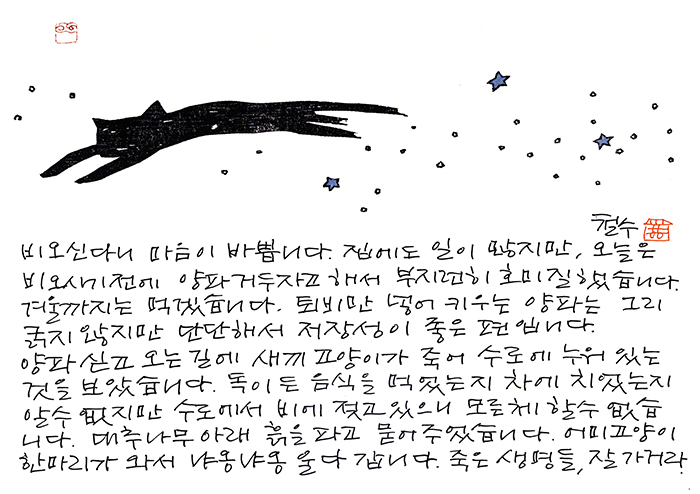 철수
비오신다니 마음이 바쁩니다. 집에도 일이 많지만, 오늘은
비오시기전에 양파거두자고 해서 부지런히 호미질했습니다.
겨울까지는 먹겠습니다. 퇴비만 넣어 키우는 양파는 그리
굵지 않지만 단단해서 저장성이 좋은 편입니다.
양파 싣고 오는 길에 새끼 고양이가 죽어 수로에 누워 있는
것을 보았습니다. 독이 든 음식을 먹었는지 차에 치었는지
알수 없지만 수로에서 비에 젖고 있으니 모른체 할수 없습
니다. 대추나무 아래 흙을 파고 묻어주었습니다. 어미고양이
한마리가 와서 냐옹냐옹 울다 갑니다. 죽은 생명들, 잘가거라.